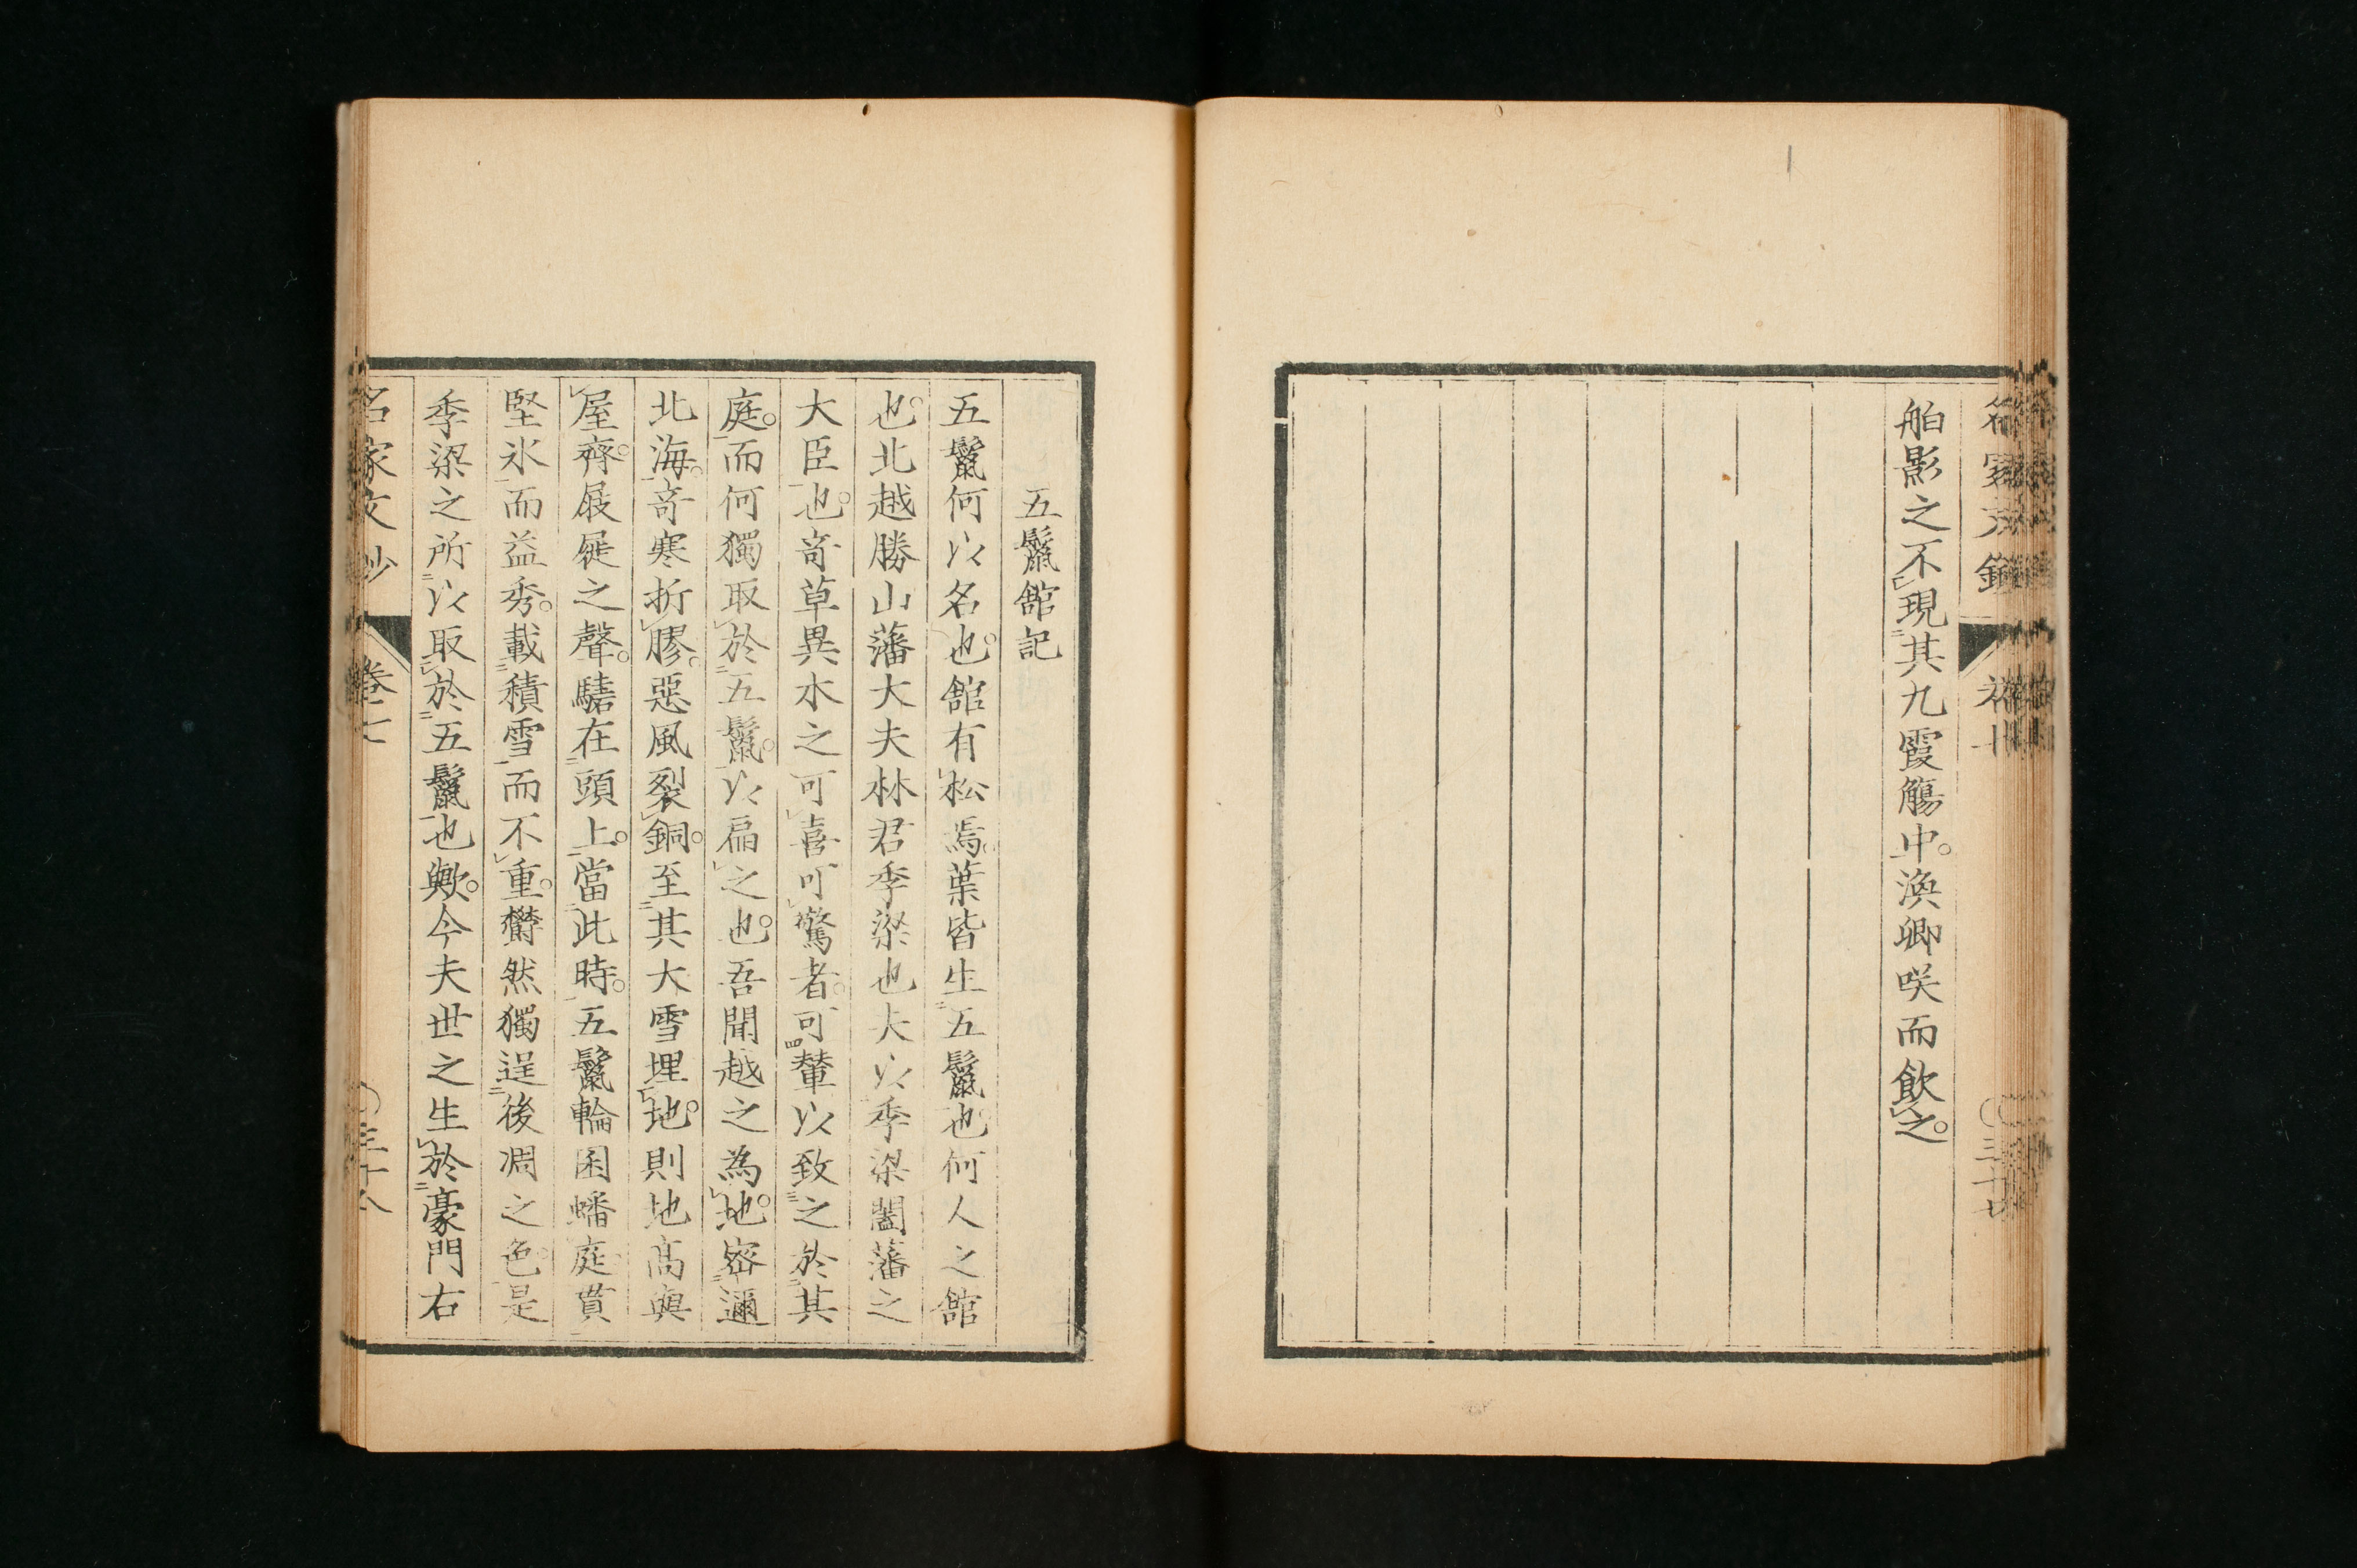 舶影之不現其九霞觴中。渙卿咲而飲之。
五鬛館記
五鬛何以名也。館有松焉。葉皆生五鬛也。何人之館
也。北越勝山藩大夫林君季梁也大以季梁闔藩之
大臣也。奇草異木之可喜可驚者。可輦以致之於其
庭。而何獨取於五鬛。以扁之也。吾聞越之為地。密邇
北海。奇寒折膠。惡風裂銅。至其大雪埋地。則地高與
屋齊。屐屣之聲。驕在頭上。當此時。五鬛輪囷蟠庭貫
堅氷而益秀。載積雪而不重。欝然獨逞後凋之色。是
季梁之所以取於五鬛也歟。今夫世之生於豪門右
名家文抄
卷七
三十八
三十七